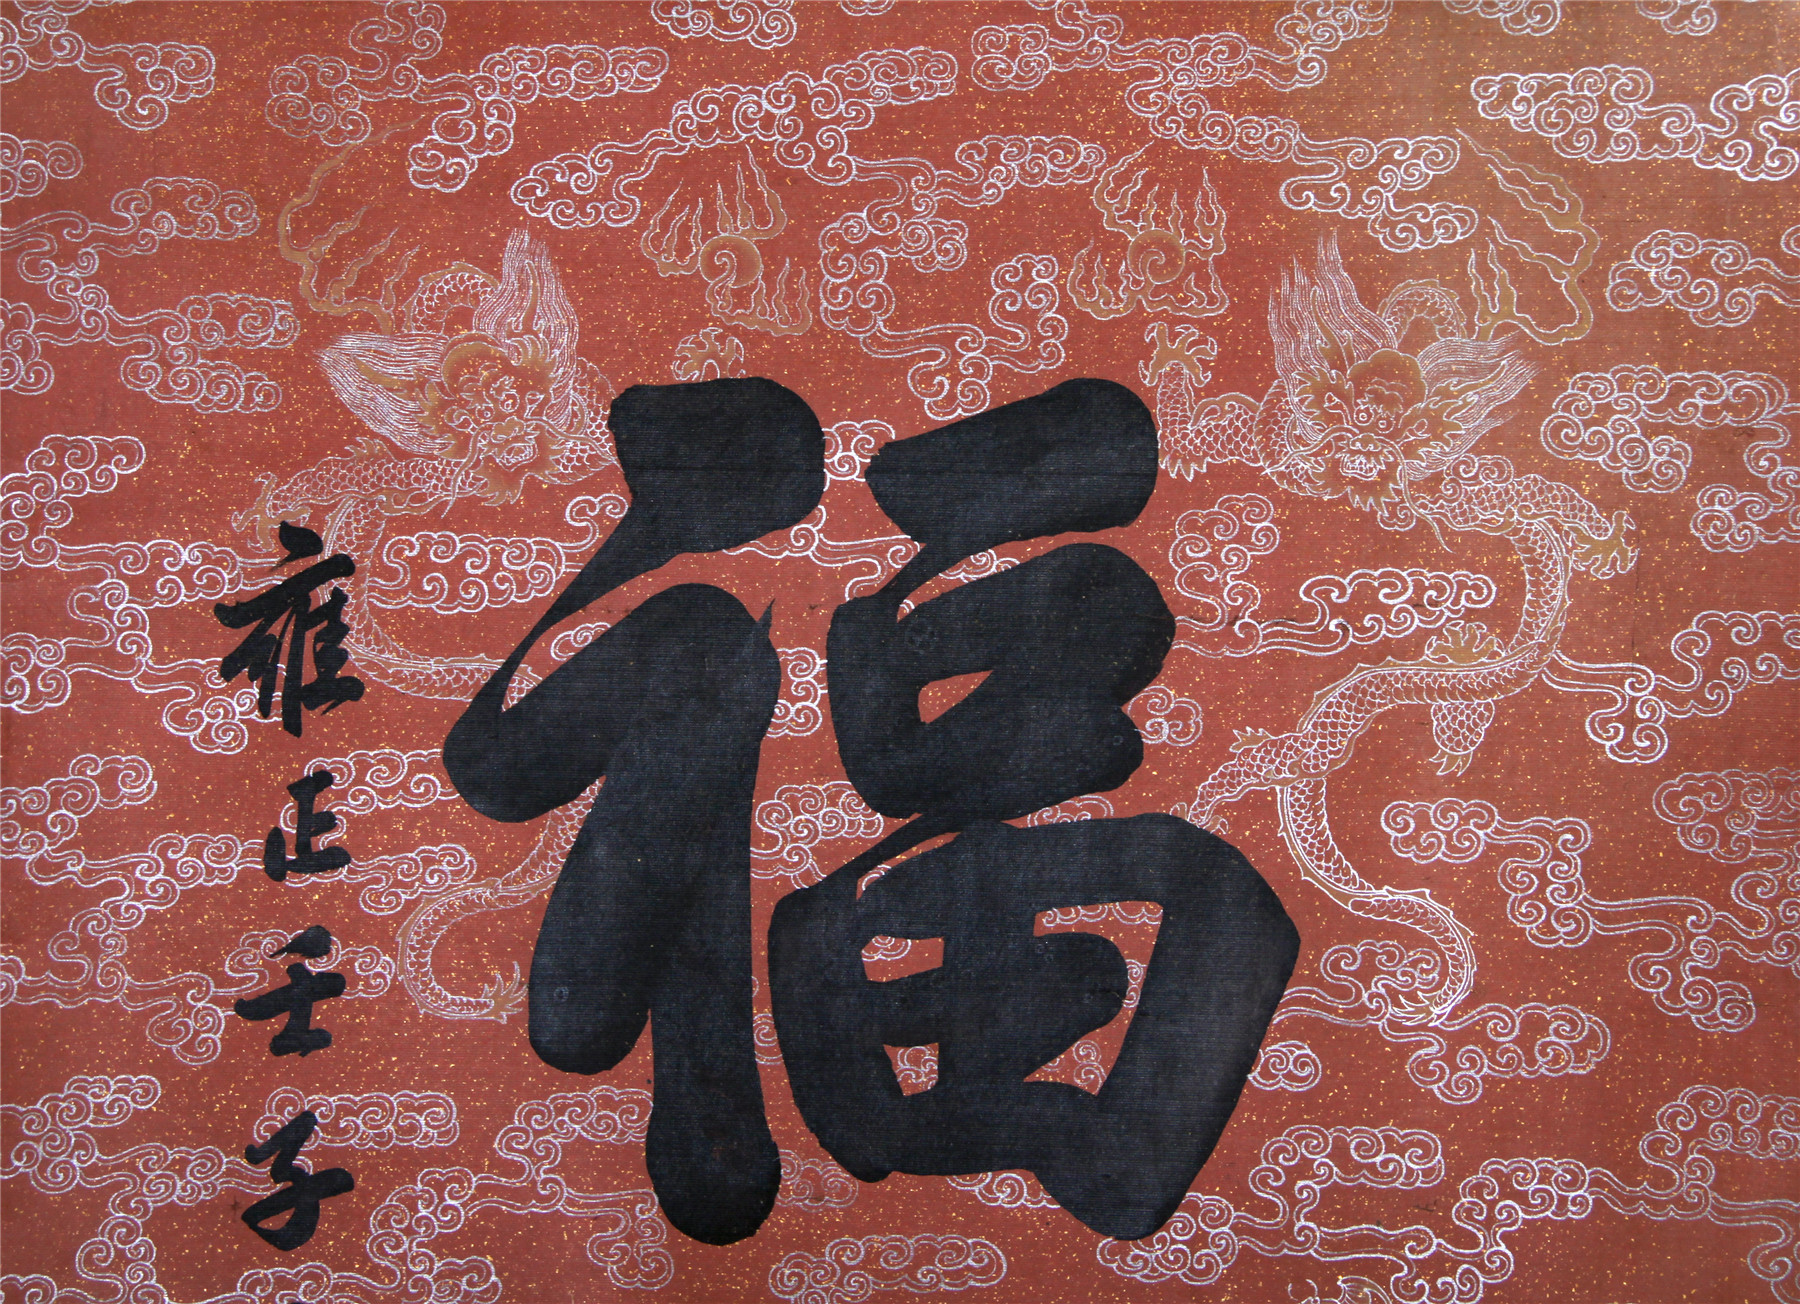 福
雍正壬子